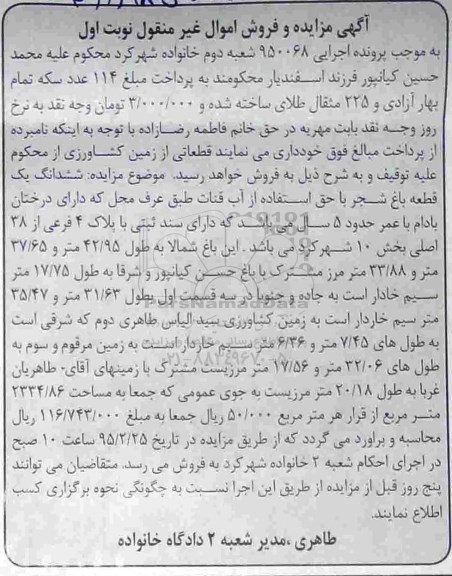 آگهی مزایده و فروش اموال غیر منقول نوبت اول
به موجب پرونده اجرایی ۹۵۰۰۶۸ شعبه دوم خانواده شهرکرد محکوم علیه محمد
حسین کیانپور فرزند اسفندیار محکومند به پرداخت مبلغ ۱۱۴ عدد سکه تمام
بهار آزادی و ۲۲۵ مثقال طلای ساخته شده و ۳/۰۰۰/۰۰۰ تومان وجه نقد به نرخ
روز وجه نقد بابت مهریه در حق خانم فاطمه رضازاده با توجه به اینکه نامبرده
از پرداخت مبالغ فوق خودداری می نمایند قطعاتی از زمین کشاورزی از محکوم
علیه توقیف و به شرح ذیل به فروش خواهد رسید. موضوع مزایده: ششدانگ یک
قطعه باغ شجر با حق استفاده از آب قنات طبق عرف محل که دارای درختان
بادام با عمر حدود ۵ سال می باشد که دارای سند ثبتی با پلاک ۴ فرعی از ۳۸
اصلی بخش ۱۰ شهرکرد می باشد. این باغ شمالا به طول ۴۲/۹۵ متر و ۳۷/۶۵
متر و ۳۳/۸۸ متر مرز مشترک با باغ حسن کیانپور و شرقا به طول ۱۷/۷۵ متر
سیم خادار است به جاده و جنوبا در سه قسمت اول بطول ۳۱/۶۳ متر و ۳۵/۴۷
متر سیم خاردار است به زمین کشاورزی سید الیاس طاهری دوم که شرقی است
به طول های ۷/۴۵ متر و ۶/۳۶ متر سیم خاردار است به زمین مرقوم و سوم به
طول های ۳۲/۰۶ متر و ۱۷/۵۶ متر مرزیست مشترک با زمینهای آقای- طاهریان
غربا به طول ۲۰/۱۸ متر مرزیست به جوی عمومی که جمعا به مساحت ۲۳۳۴/۸۶
متر مربع از قرار هر متر مربع ۵۰/۰۰۰ ریال جمعا به مبلغ ۱۱۶/۷۴۳/۰۰۰ ریال
محاسبه و براورد می گردد که از طریق مزایده در تاریخ ۹۵/۲/۲۵ ساعت ۱۰ صبح
در اجرای احکام شعبه ۲ خانواده شهرکرد به فروش می رسد. متقاضیان می توانند
پنج روز قبل از مزایده از طریق این اجرا نسبت به چگونگی نحوه برگزاری کسب
اطلاع نمایند.
طاهری ،مدیر شعبه ۲ دادگاه خانواده